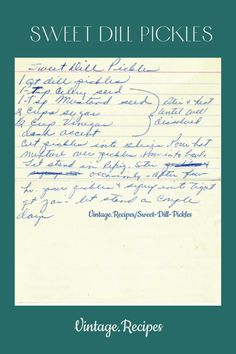 SWEET DILL PICKLES
Sweet Dill Pickles
1 qt dill pickles
1-tsp Celery seed
1-T sp. Mustard seed
2 Cups sugar
Cup Vinegar
dash accent
Stir & heat
until well
dissolved
Cut pickles into slices. Pour hot
mixture over pickles.
Let stand in
occasionly - after few
hr. pour pickles & syrup into
jar - let stand a couple
days
Vintage.Recipes/Sweet-Dill-Pickles
Vintage.Recipes